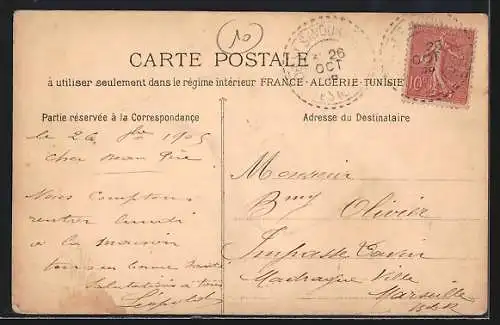 CARTE POSTALE
à utiliser seulement dans le régime intérieur FRANCE - ALGÉRIE - TUNISIE
26
OCT
10
Partie réservée à la Correspondance
Adresse du Destinataire
le 26 1905
cher beau Père
Nous comptons
rentrer lundi
à la maison
tous en bonne santé
Salutations à tous
Léopold
Monsieur
Bmy Olivier
Impasse
Madrague Ville
Marseille